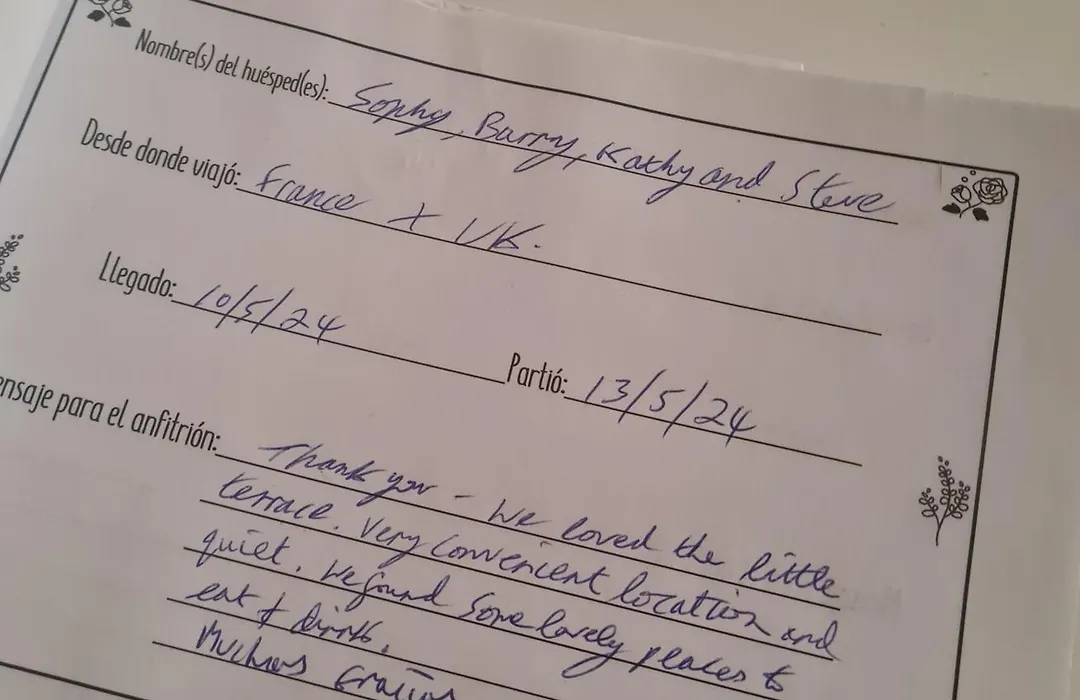 Nombre(s) del huésped(es): Sophy, Barry, Kathy and Steve
Desde donde viajó: France + UK.
Llegado: 10/5/24
Partió: 13/5/24
ensaje para el anfitrión: Thank you - We loved the little
terrace. Very convenient location and
quiet. We found some lovely places to
eat & drink.
Muchas Gracias